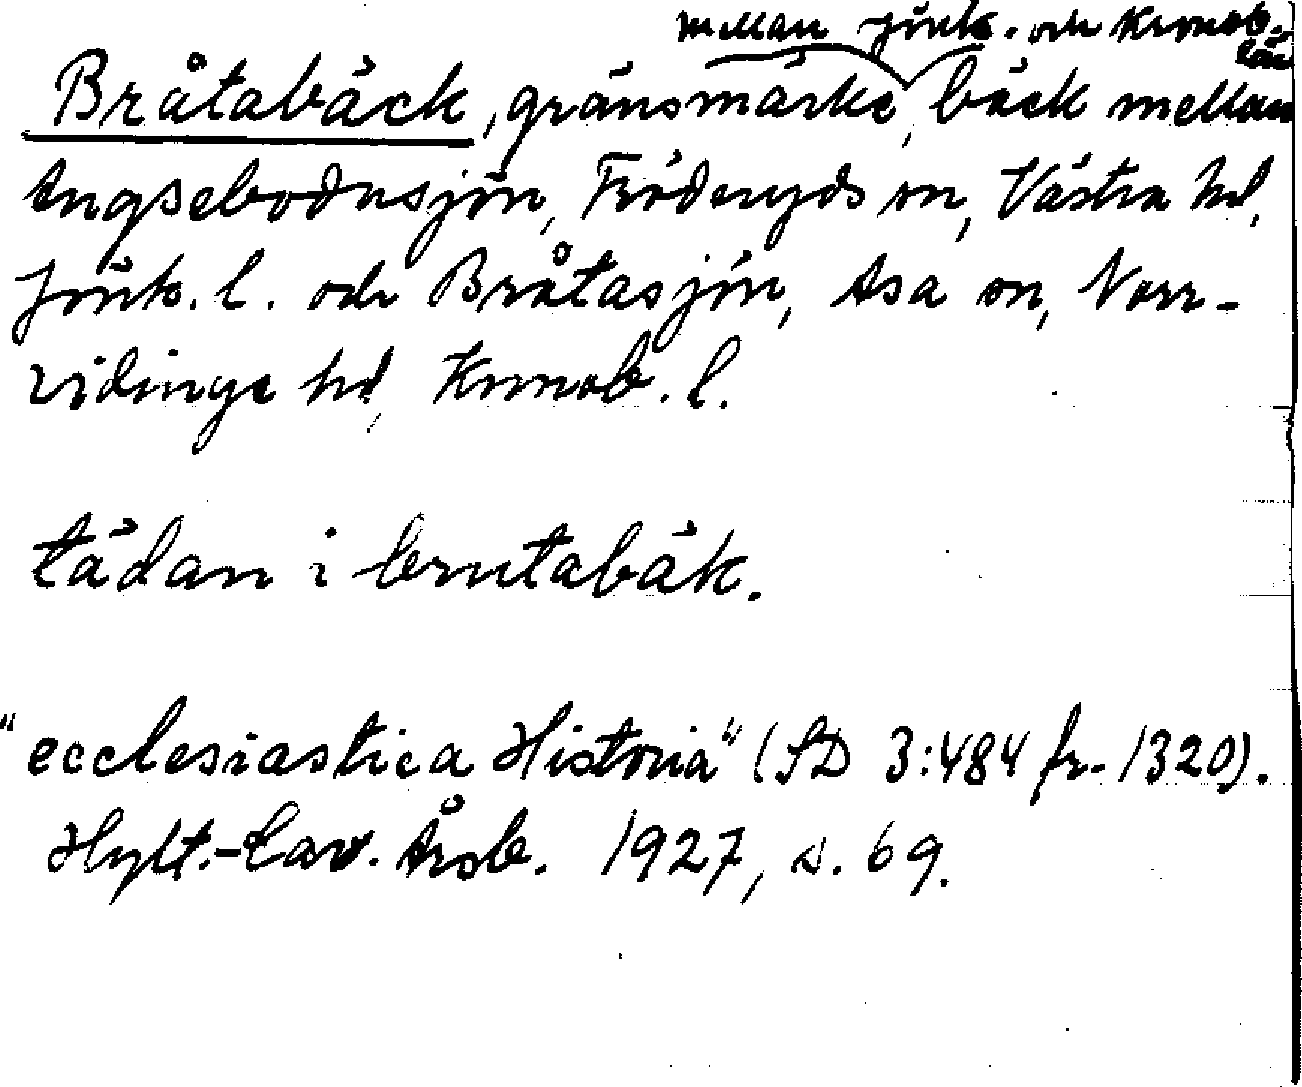 mellan Jönk. och Kronob.
län
Bråtabäck, gränsmärke, bäck mellan
Ängsebodasjön, Fröderyds sn, Västra hd,
Jönk. l. och Bråtasjön, Asa sn, Norr-
vidinge hd, Kronob. l.
tädan i brutabäk.
"ecclesiastica Historia" (SD 3:484 fr. 1320).
Hylt.-Cav. Årsb. 1927, s. 69.